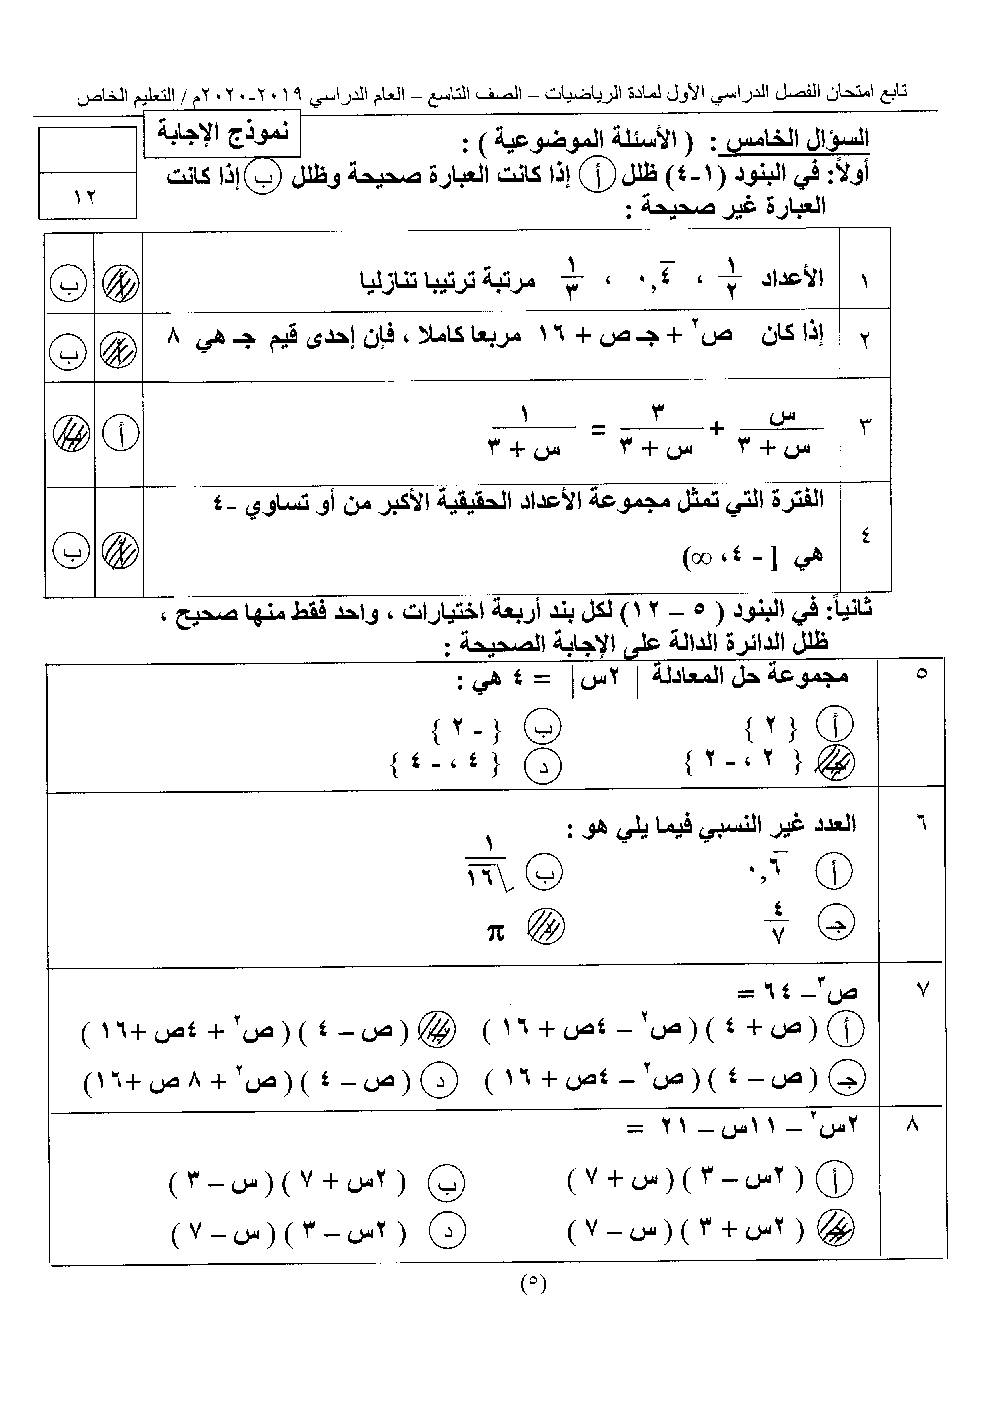 تابع امتحان الفصل الدراسي الأول لمادة الرياضيات – الصف التاسع – العام الدراسي ٢٠١٩-٢٠٢٠م / التعليم الخاص
نموذج الإجابة
السؤال الخامس : ( الأسئلة الموضوعية ) :
١٢
أولاً: في البنود (١-٤) ظلل أ إذا كانت العبارة صحيحة وظلل ب إذا كانت
العبارة غير صحيحة :
١ الأعداد ١/٢ ، ٠,٤̅ ، ١/٣ مرتبة ترتيبا تنازليا ب
٢ إذا كان ص٢ + جـ ص + ١٦ مربعا كاملا ، فإن إحدى قيم جـ هي ٨ ب
٣ س/(س + ٣) + ٣/(س + ٣) = ١/(س + ٣) أ ب
٤ الفترة التي تمثل مجموعة الأعداد الحقيقية الأكبر من أو تساوي -٤
هي [ - ٤ ، ∞) ب
ثانياً: في البنود ( ٥ – ١٢) لكل بند أربعة اختيارات ، واحد فقط منها صحيح ،
ظلل الدائرة الدالة على الإجابة الصحيحة :
٥ مجموعة حل المعادلة | ٢س | = ٤ هي :
أ { ٢ } ب { - ٢ }
جـ { ٢ ، - ٢ } د { ٤ ، - ٤ }
٦ العدد غير النسبي فيما يلي هو :
أ ٠,٦̅ ب ١/√١٦
جـ ٤/٧ د π
٧ ص٣ – ٦٤ =
أ ( ص + ٤ ) ( ص٢ – ٤ص + ١٦ ) ( ص – ٤ ) ( ص٢ + ٤ص +١٦ )
جـ ( ص – ٤ ) ( ص٢ – ٤ص + ١٦ ) د ( ص – ٤ ) ( ص٢ + ٨ ص +١٦)
٨ ٢س٢ – ١١س – ٢١ =
أ ( ٢س – ٣ ) ( س + ٧ ) ب ( ٢س + ٧ ) ( س – ٣ )
جـ ( ٢س + ٣ ) ( س – ٧ ) د ( ٢س – ٣ ) ( س – ٧ )
(٥)